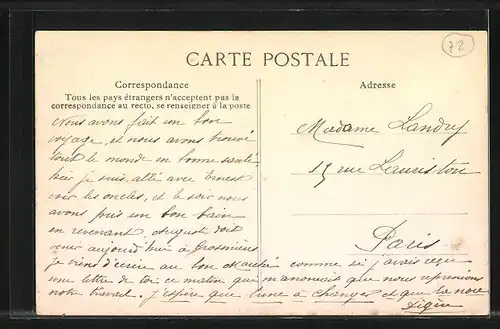 72
CARTE POSTALE
Correspondance
Tous les pays étrangers n'acceptent pas la
correspondance au recto, se renseigner à la poste
Adresse
Nous avons fait un bon
voyage, et nous avons trouvé
tout le monde en bonne santé
hier je suis allé avec Ernest
voir les oncles, et le soir nous
avons pris un bon bain
en revenant. August doit
venir aujourd'hui à
je viens d'écrire au bon comme si j'avais reçu
une lettre de toi ce matin que m'anoncait que nous reprenions
notre travail. J'espère que lune à changer et que la noce
Madame Landry
15 rue Lauriston
Paris